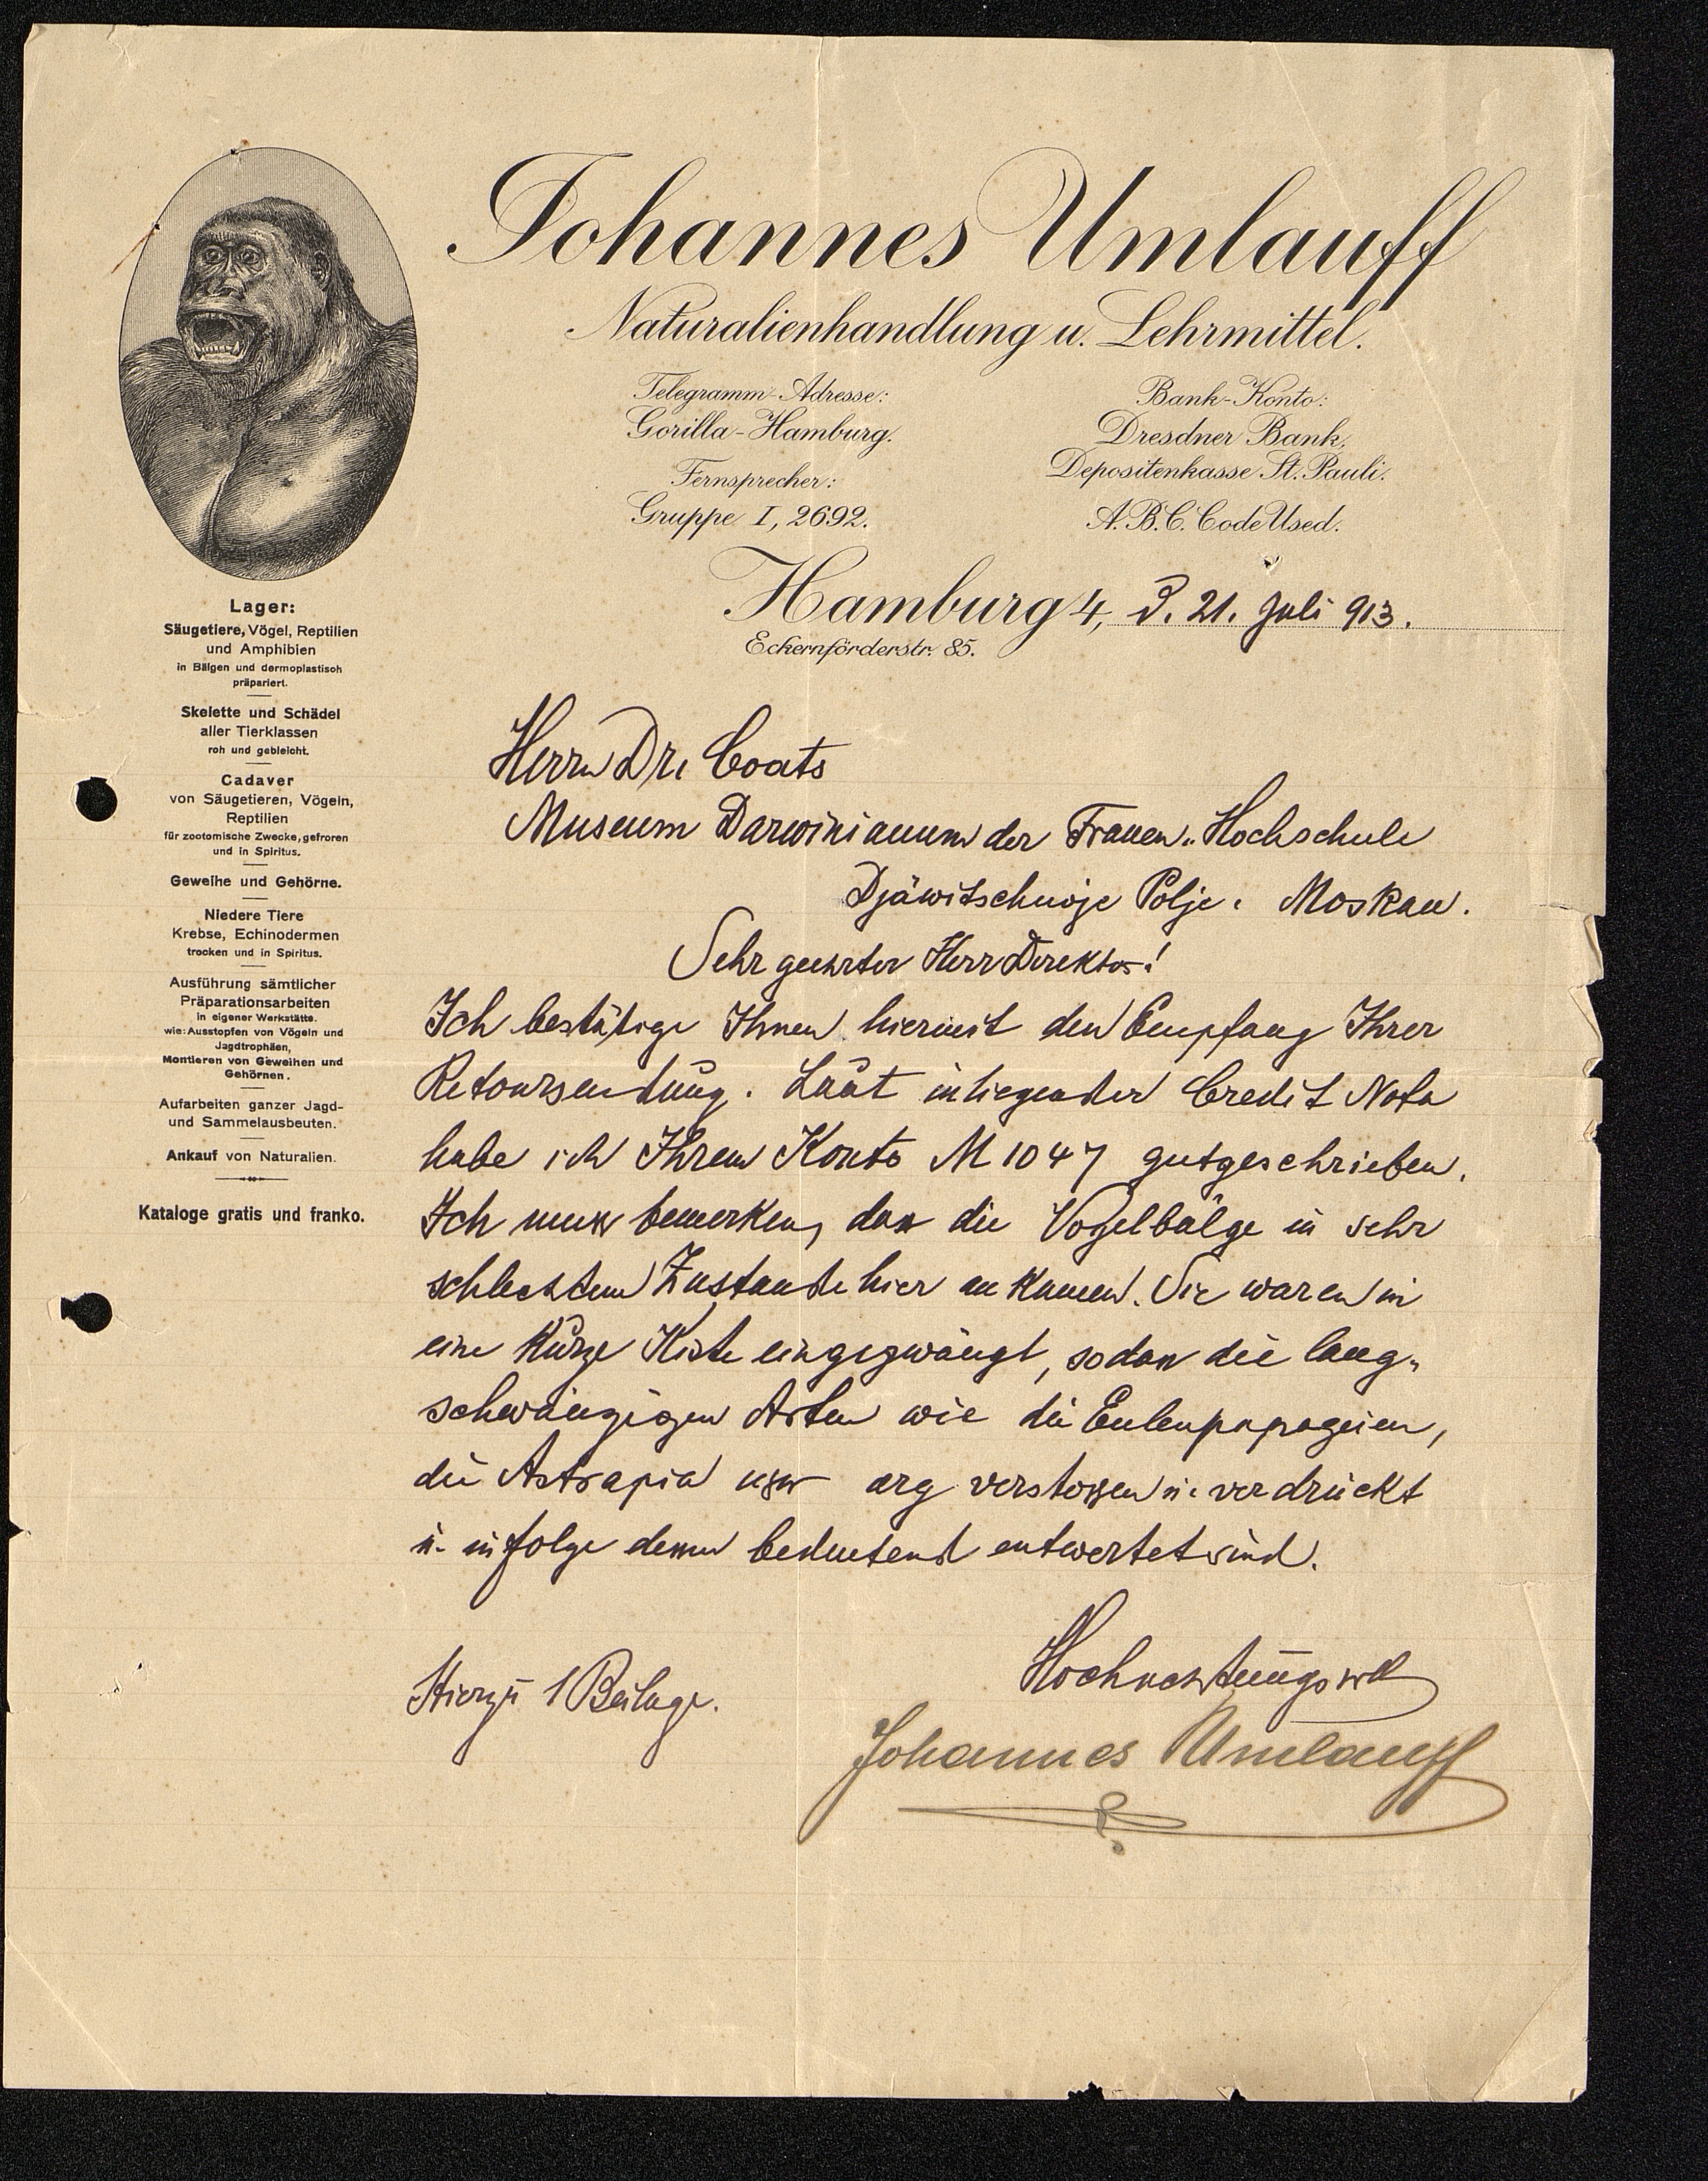 Johannes Umlauff
Naturalienhandlung u. Lehrmittel.
Telegramm-Adresse:
Gorilla-Hamburg.
Fernsprecher:
Gruppe I, 2692.
Bank-Konto:
Dresdner Bank,
Depositenkasse St. Pauli.
A.B.C. Code Used.
Hamburg 4, d. 21. Juli 913.
Eckernförderstr. 85.
Lager:
Säugetiere, Vögel, Reptilien
und Amphibien
in Bälgen und dermoplastisch
präpariert.
Skelette und Schädel
aller Tierklassen
roh und gebleicht.
Cadaver
von Säugetieren, Vögeln,
Reptilien
für zootomische Zwecke, gefroren
und in Spiritus.
Geweihe und Gehörne.
Niedere Tiere
Krebse, Echinodermen
trocken und in Spiritus.
Ausführung sämtlicher
Präparationsarbeiten
in eigener Werkstätte.
wie: Ausstopfen von Vögeln und
Jagdtrophäen,
Montieren von Geweihen und
Gehörnen.
Aufarbeiten ganzer Jagd-
und Sammelausbeuten.
Ankauf von Naturalien.
Kataloge gratis und franko.
Herrn Dr. Coats
Museum Darwinianum der Frauen-Hochschule
Djäwitschwoje Polje. Moskau.
Sehr geehrter Herr Direktor!
Ich bestätige Ihnen hiermit den Empfang Ihrer
Retoursendung. Laut inliegender Credit Nota
habe ich Ihrem Konto M 1047 gutgeschrieben.
Ich muss bemerken, dass die Vogelbälge in sehr
schlechtem Zustande hier an kamen. Sie waren in
eine kurze Kiste eingezwängt, sodass die lang-
schwänzigen Arten wie die Eulenpapageien,
die Astrapia usw arg verstossen u. verdrückt
u. in folge dessen bedeutend entwertet sind.
Hochachtungsvoll
Hierzu 1 Beilage.
Johannes Umlauff